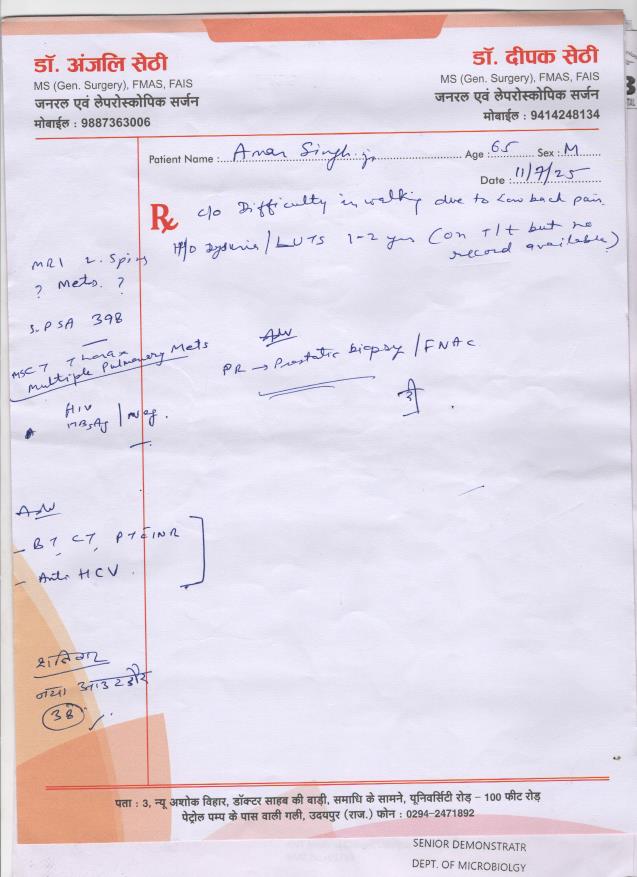 डॉ. अंजलि सेठी
MS (Gen. Surgery), FMAS, FAIS
जनरल एवं लेपरोस्कोपिक सर्जन
मोबाईल : 9887363006
डॉ. दीपक सेठी
MS (Gen. Surgery), FMAS, FAIS
जनरल एवं लेपरोस्कोपिक सर्जन
मोबाईल : 9414248134
Patient Name : Amar Singh ji Age : 65 Sex : M
Date : 11/7/25
Rx c/o Difficulty in walking due to low back pain
H/O Dysuria / LUTS 1-2 yrs (on T/t but no
record available)
MRI L. Spine
? Mets. ?
S. PSA 398
MSCT Thorax
Multiple Pulmonary Mets
HIV
HBsAg / Neg.
Adv
PR → Prostatic biopsy / FNAC
Adv
- BT CT, PT c INR
- Anti HCV
शनिवार
नया आउटडोर
38
पता : 3, न्यू अशोक विहार, डॉक्टर साहब की बाड़ी, समाधि के सामने, यूनिवर्सिटी रोड़ – 100 फीट रोड़
पेट्रोल पम्प के पास वाली गली, उदयपुर (राज.) फोन : 0294-2471892
SENIOR DEMONSTRATR
DEPT. OF MICROBIOLGY